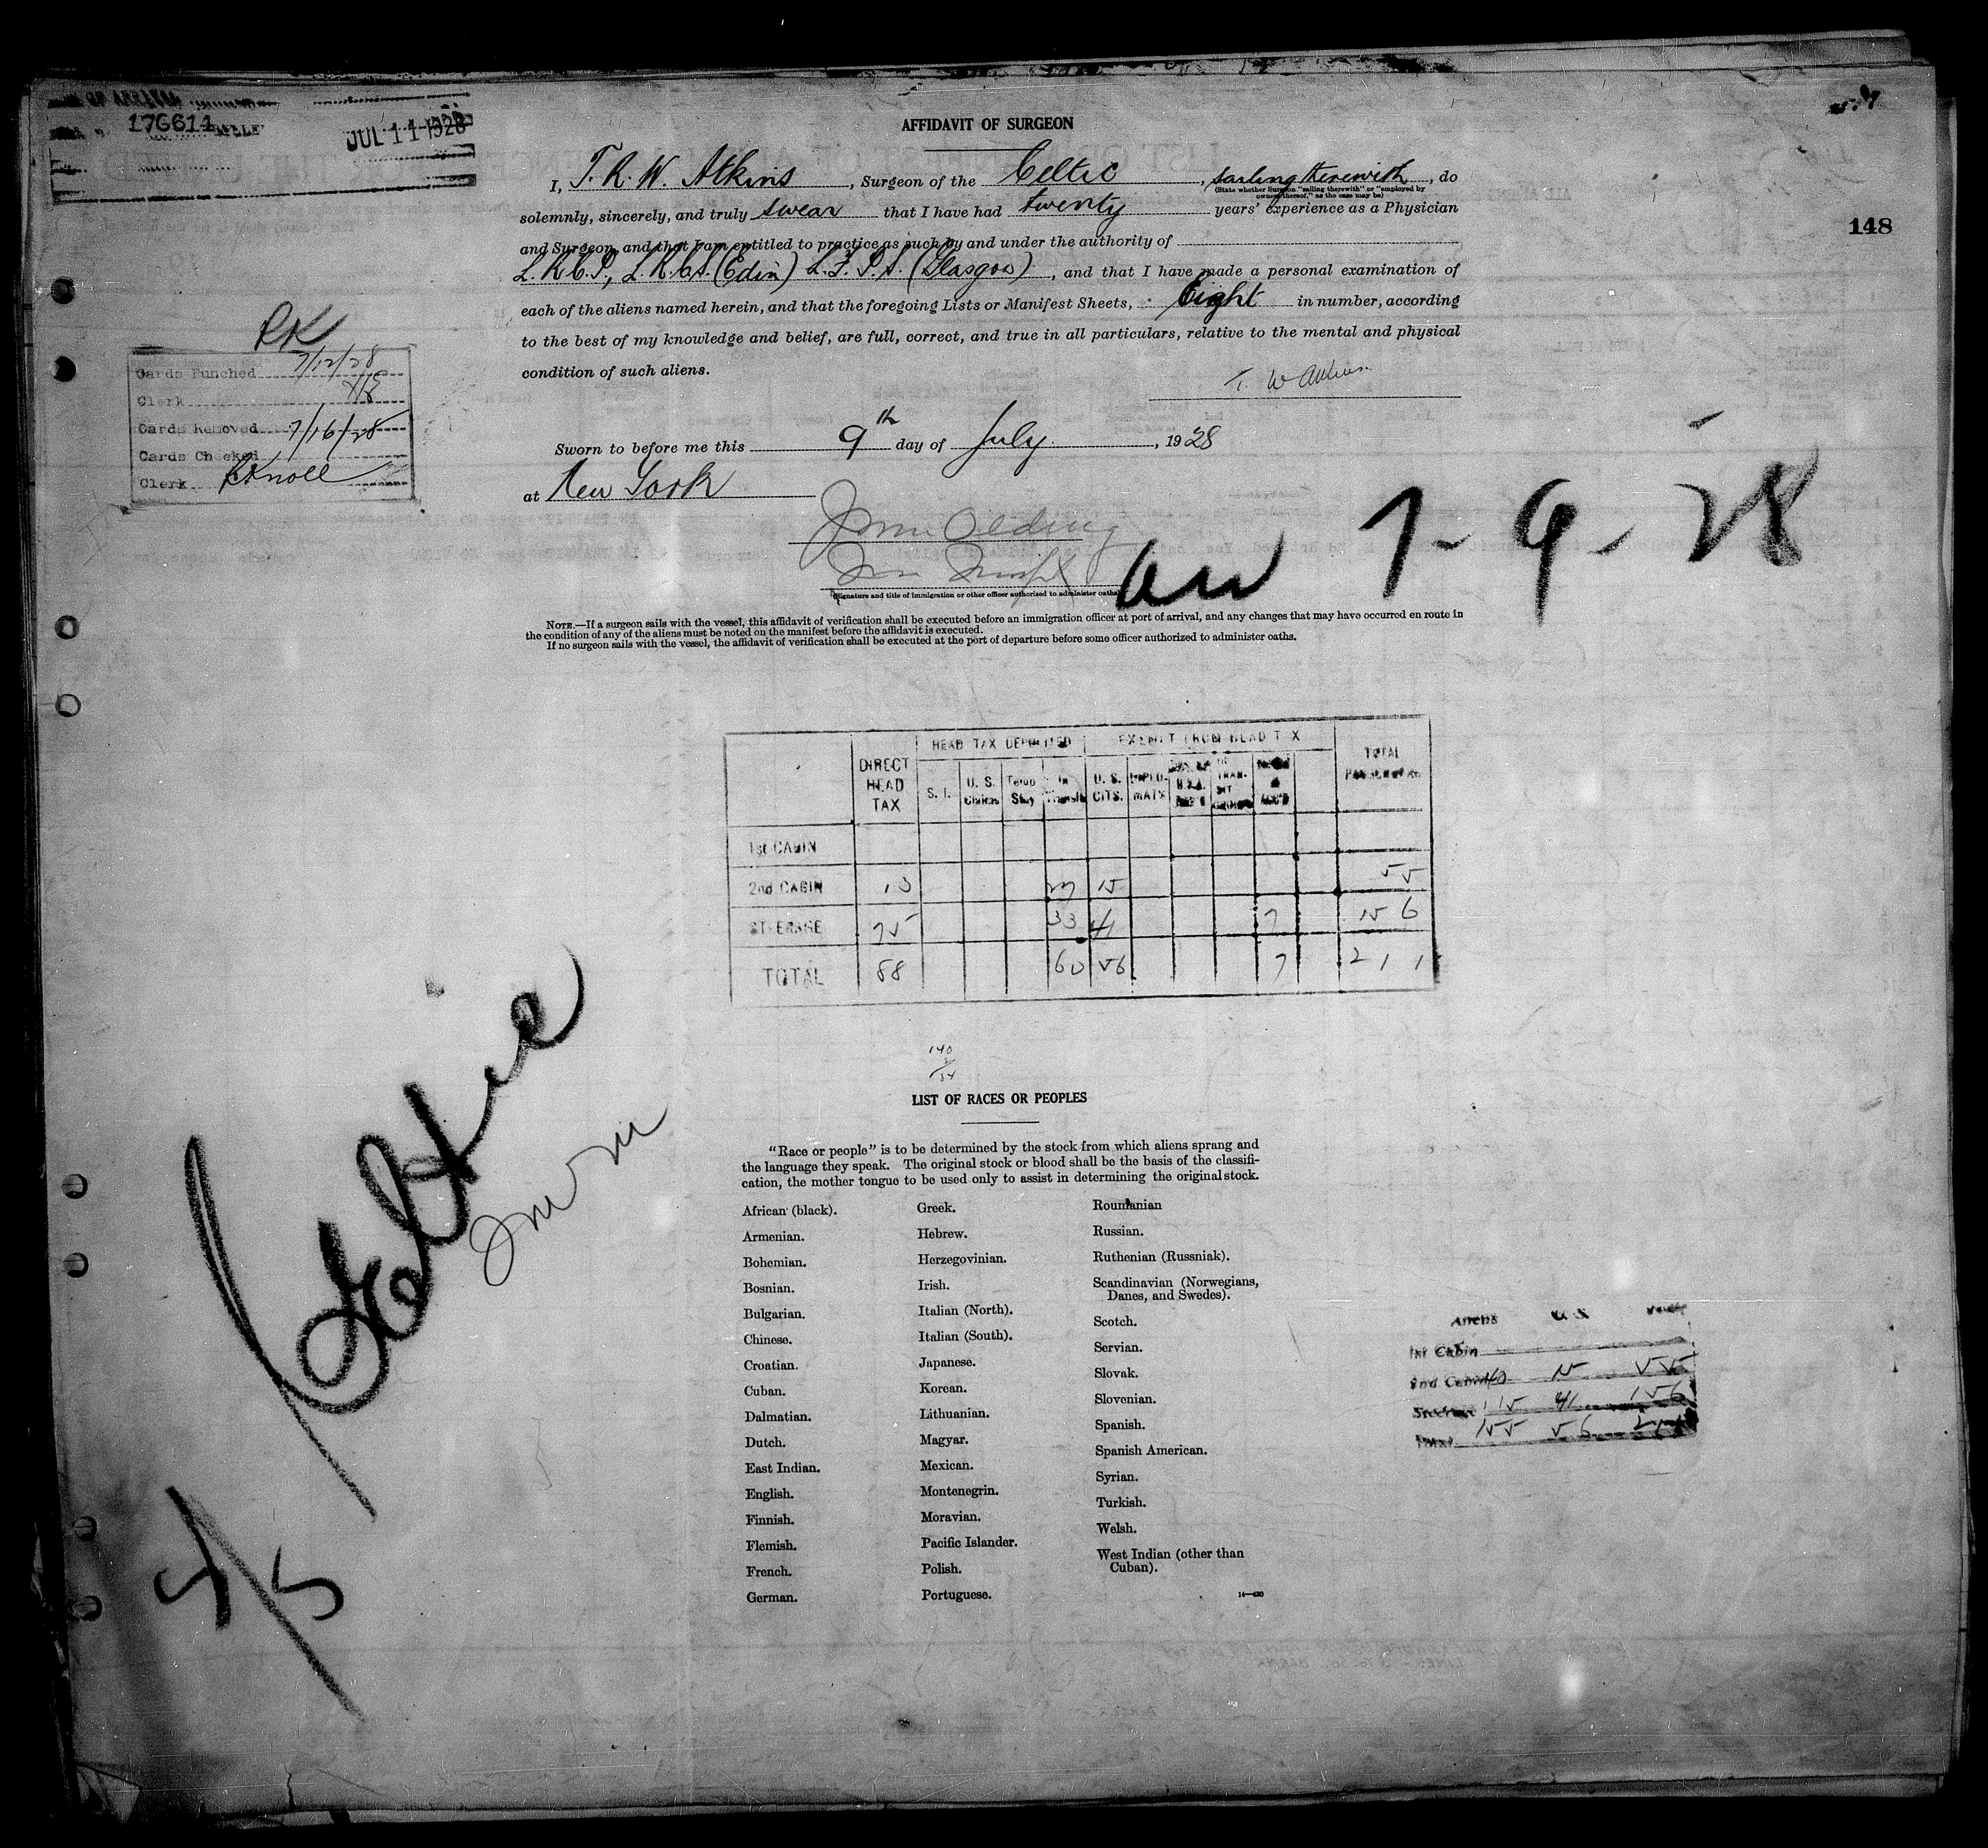 176611
JUL 11 1928
148
AFFIDAVIT OF SURGEON
I, T. R. W. Atkins, Surgeon of the Celtic, sailing therewith, do
(State whether Surgeon "sailing therewith" or "employed by owners thereof," as the case may be)
solemnly, sincerely, and truly swear that I have had twenty years' experience as a Physician
and Surgeon, and that I am entitled to practice as such by and under the authority of
L.R.C.P., L.R.C.S. (Edin) L.F.P.S. (Glasgow), and that I have made a personal examination of
each of the aliens named herein, and that the foregoing Lists or Manifest Sheets, Eight in number, according
to the best of my knowledge and belief, are full, correct, and true in all particulars, relative to the mental and physical
condition of such aliens.
Sworn to before me this 9th day of July, 1928
at New York
(Signature and title of immigration or other officer authorized to administer oaths)
7-9-28
RK
Cards Punched 7/12/28
Clerk
Cards Removed 7/16/28
Cards Checked
Clerk RKnoll
NOTE.—If a surgeon sails with the vessel, this affidavit of verification shall be executed before an immigration officer at port of arrival, and any changes that may have occurred en route in
the condition of any of the aliens must be noted on the manifest before the affidavit is executed.
If no surgeon sails with the vessel, the affidavit of verification shall be executed at the port of departure before some officer authorized to administer oaths.
HEAD TAX DEPOSITED EXEMPT FROM HEAD TAX
DIRECT HEAD TAX S. I. U. S. Citizens Temp Stay In Transit U. S. CITS. DIPLOMATS TOTAL
1st CABIN
2nd CABIN 13 27 15 55
STEERAGE 75 33 41 7 156
TOTAL 88 60 56 7 211
140
LIST OF RACES OR PEOPLES
"Race or people" is to be determined by the stock from which aliens sprang and
the language they speak. The original stock or blood shall be the basis of the classifi-
cation, the mother tongue to be used only to assist in determining the original stock.
African (black).
Armenian.
Bohemian.
Bosnian.
Bulgarian.
Chinese.
Croatian.
Cuban.
Dalmatian.
Dutch.
East Indian.
English.
Finnish.
Flemish.
French.
German.
Greek.
Hebrew.
Herzegovinian.
Irish.
Italian (North).
Italian (South).
Japanese.
Korean.
Lithuanian.
Magyar.
Mexican.
Montenegrin.
Moravian.
Pacific Islander.
Polish.
Portuguese.
Roumanian
Russian.
Ruthenian (Russniak).
Scandinavian (Norwegians,
Danes, and Swedes).
Scotch.
Servian.
Slovak.
Slovenian.
Spanish.
Spanish American.
Syrian.
Turkish.
Welsh.
West Indian (other than
Cuban).
14—430
Aliens U S
1st Cabin
2nd Cabin 40 15 55
115 41 156
155 56 211
Celtic
S/S